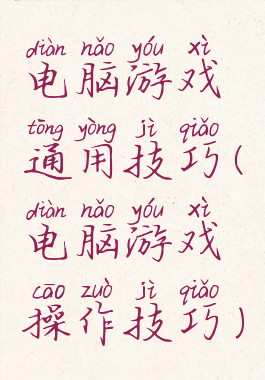 diàn nǎo yóu xì
电脑游戏
tōng yòng jì qiǎo
通用技巧(
diàn nǎo yóu xì
电脑游戏
cāo zuò jì qiǎo
操作技巧)